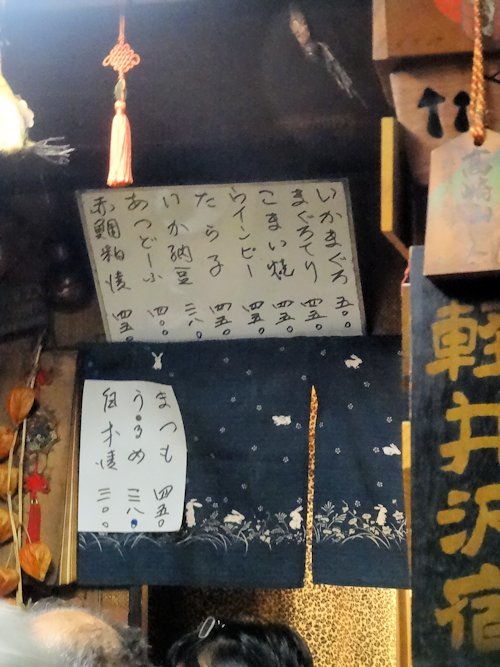 いかまぐろ 五〇〇
まぐろてり 四五〇
こまい焼 四五〇
ウインピー
たら子 四五〇
いか納豆 三八〇
あつどーふ
赤鯛粕漬 四五〇
まつも 四五〇
うるめ 三八〇
白才漬 三〇〇
軽井沢宿